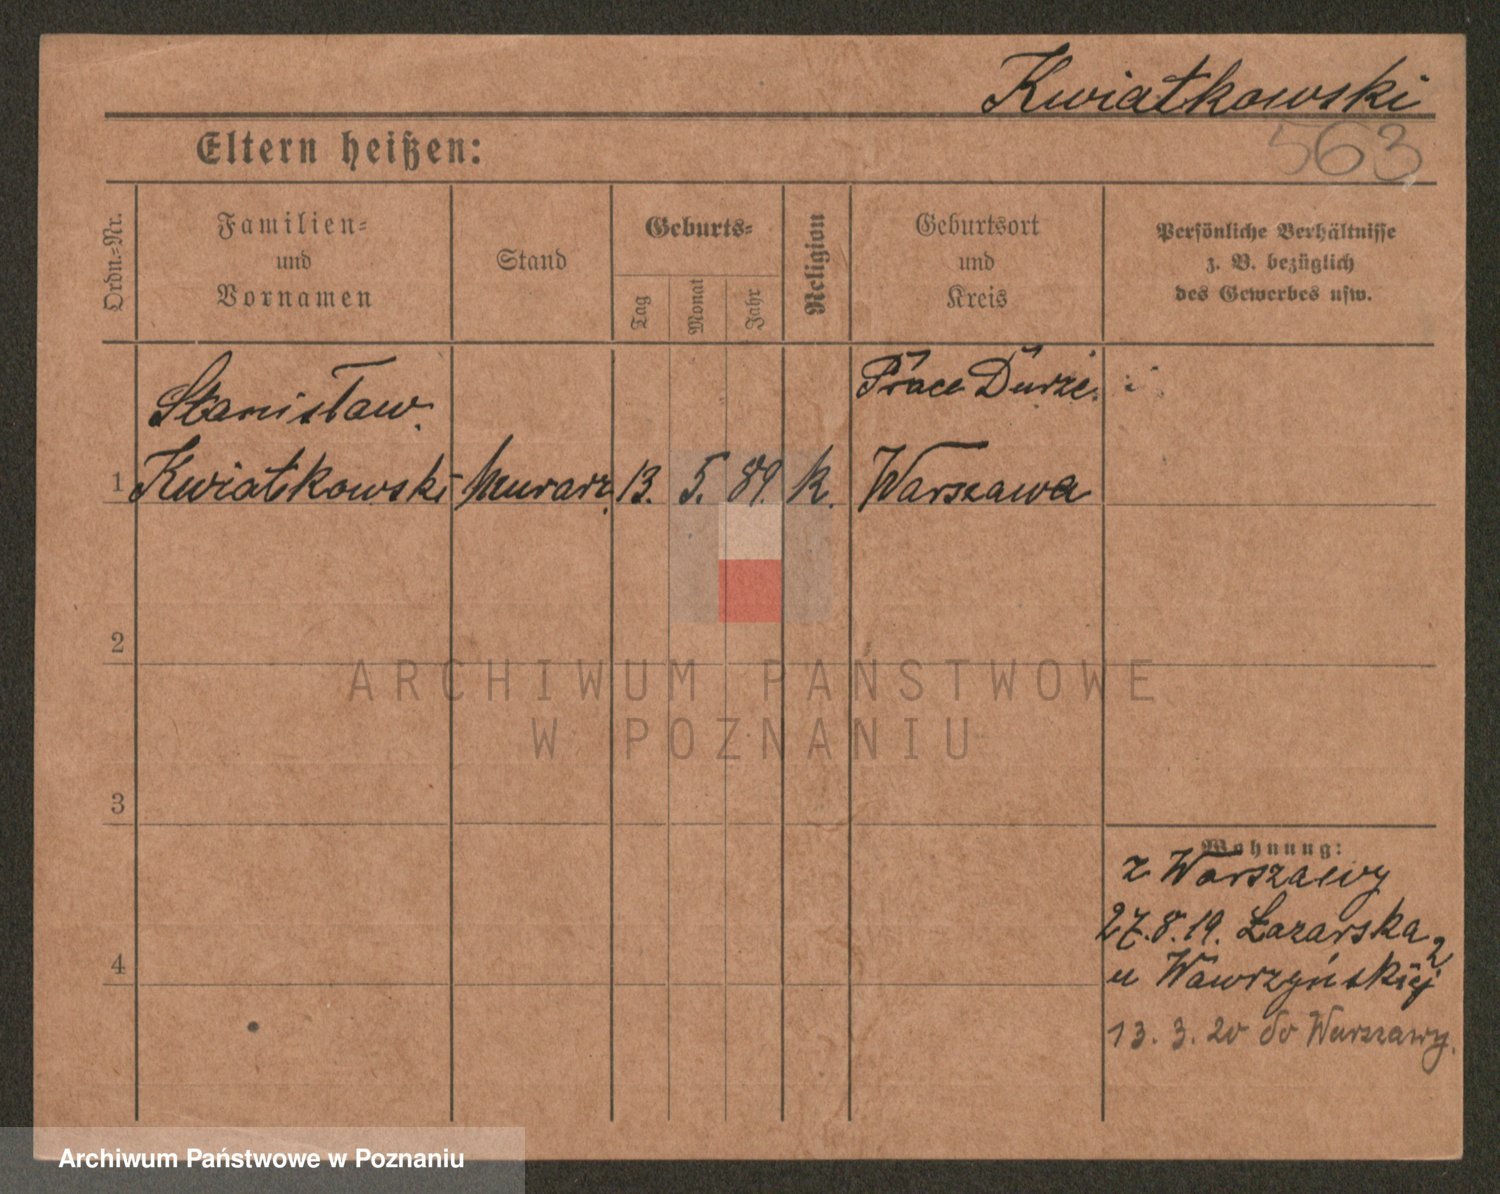 Kwiatkowski
563
Eltern heißen:
Ordn.-Nr.
Familien-
und
Vornamen
Stand
Geburts-
Tag
Monat
Jahr
Religion
Geburtsort
und
Kreis
Persönliche Verhältnisse
z. B. bezüglich
des Gewerbes usw.
1
Stanisław
Kwiatkowski
Murarz
13.
5.
89.
k.
Prace Durze
Warszawa
2
3
4
Wohnung:
z Warszawy
27.8.19. Łazarska 2
u Wawrzyńskiej
13. 3. 20 do Warszawy.
ARCHIWUM PAŃSTWOWE
W POZNANIU
Archiwum Państwowe w Poznaniu